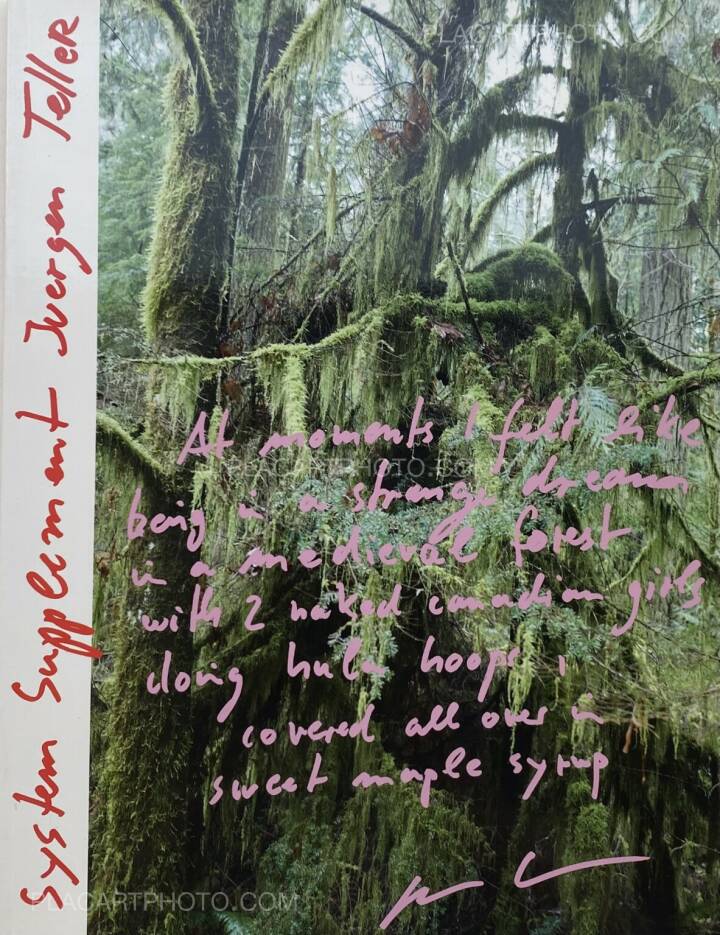 System Supplement Juergen Teller
PLACARTPHOTO.COM
At moments I felt like
being in a strange dream
in a medieval forest
with 2 naked canadian girls
doing hula hoops,
covered all over in
sweet maple syrup
PLACARTPHOTO.COM